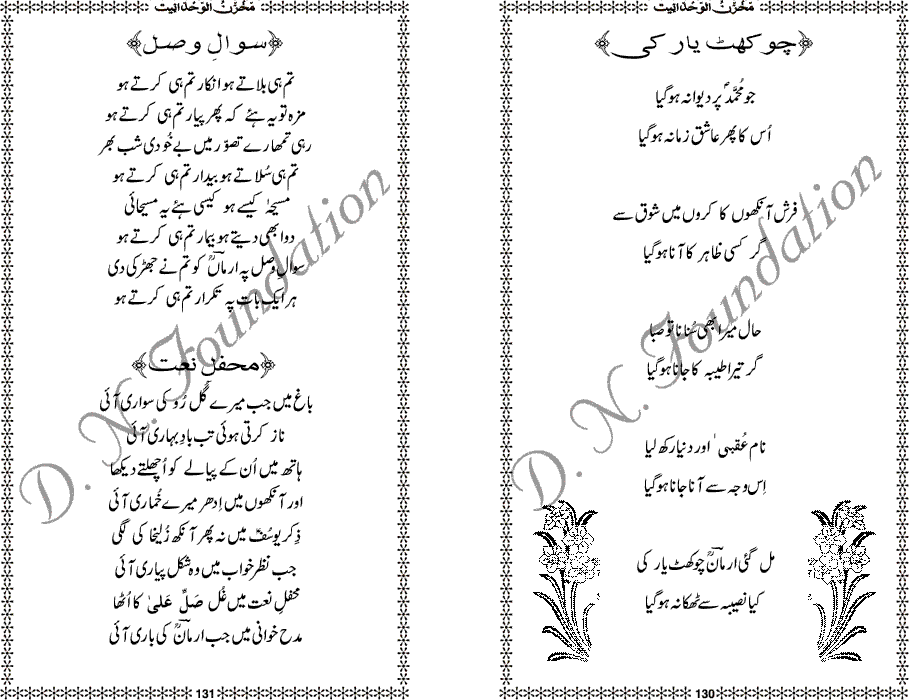 مَخْزَنُ الوَحْدَانِیت
چوکھٹ یار کی
جو مُحَمَّدؐ پر دیوانہ ہوگیا
اُس کا پھر عاشق زمانہ ہوگیا
فرش آنکھوں کا کروں میں شوق سے
گر کسی ظاہر کا آنا ہوگیا
حال میرا بھی سُنانا تو صبا
گر تیرا طیبہ کا جانا ہوگیا
نام عُقبیٰ اور دنیا رکھ لیا
اِس وجہ سے آنا جانا ہوگیا
مل گئی ارمانؒ چوکھٹ یار کی
کیا نصیبہ سے ٹھکانہ ہوگیا
130
مَخْزَنُ الوَحْدَانِیت
سوالِ وصل
تم ہی بلاتے ہو انکار تم ہی کرتے ہو
مزہ تو یہ ہئے کہ پھر پیار تم ہی کرتے ہو
رہی تمھارے تصوّر میں بے خُودی شب بھر
تم ہی سُلاتے ہو بیدار تم ہی کرتے ہو
مسیحٰہ کیسے ہو کیسی ہئے یہ مسیحائی
دوا بھی دیتے ہو بیمار تم ہی کرتے ہو
سوالِ وصل پہ ارمانؒ کو تم نے جھڑکی دی
ہر ایک بات پہ تکرار تم ہی کرتے ہو
محفلِ نعت
باغ میں جب میرے گُل رُو کی سواری آئی
ناز کرتی ہوئی تب بادِ بہاری آئی
ہاتھ میں اُن کے پیالے کو اُچھلتے دیکھا
اور آنکھوں میں اِدھر میرے خُماری آئی
ذِکر یوسُفؑ میں نہ پھر آنکھ زُلیخا کی لگی
جب نظر خواب میں وہ شکل پیاری آئی
محفلِ نعت میں غُل صَلِّ عَلیٰ کا اُٹھا
مدح خوانی میں جب ارمانؒ کی باری آئی
131
D. N. Foundation
D. N. Foundation